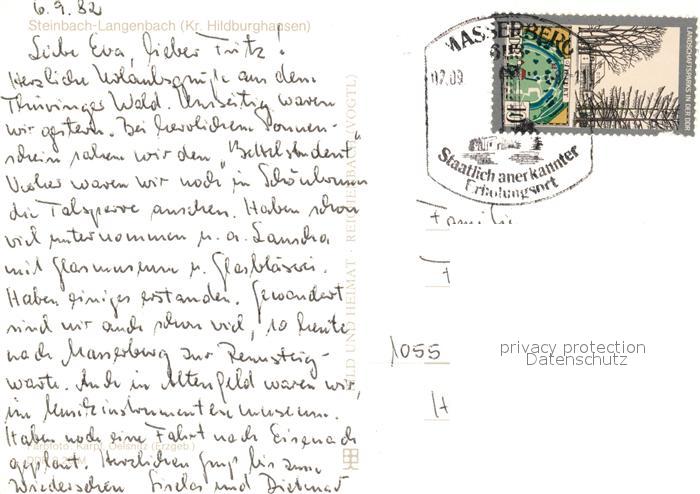 6.9.82
Steinbach-Langenbach (Kr. Hildburghausen)
Liebe Eva, lieber Fritz!
Herzliche Urlaubsgrüße aus dem
Thüringer Wald. Umseitig waren
wir gestern. Bei herrlichem Sonnen-
schein sahen wir den "Bettelstudent"
Vorher waren wir noch in Schönbrunn
die Talsperre ansehen. Haben schon
viel unternommen u. a. Lauscha
mit Glasmuseum u. Glasbläserei.
Haben einiges erstanden. Gewandert
sind wir auch schon viel, so heute
nach Masserberg zur Rennsteig-
warte. Auch in Altenfeld waren wir,
im Musikinstrumentenmuseum.
Haben noch eine Fahrt nach Eisenach
geplant. Herzlichen Gruß bis zum
Wiedersehen Gisela und Dietmar
BILD UND HEIMAT · REICHENBACH (VOGTL)
Farbfoto: Karpf, Oelsnitz (Erzgeb.)
MASSERBERG
07.09
Staatlich anerkannter
Erholungsort
10
DDR
Familie
1055
privacy protection
Datenschutz